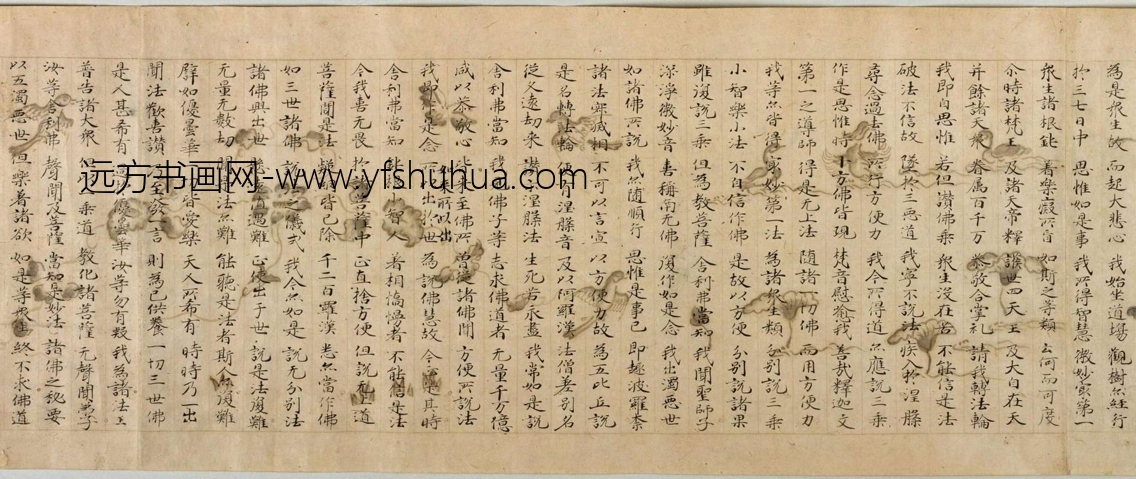 為是眾生故 而起大悲心 我始坐道場 觀樹亦經行
於三七日中 思惟如是事 我所得智慧 微妙最第一
眾生諸根鈍 著樂癡所盲 如斯之等類 云何而可度
尒時諸梵王 及諸天帝釋 護世四天王 及大自在天
并餘諸天眾 眷屬百千万 恭敬合掌礼 請我轉法輪
我即自思惟 若但讚佛乘 眾生没在苦 不能信是法
破法不信故 墜於三惡道 我寧不說法 疾入於涅槃
尋念過去佛 所行方便力 我今所得道 亦應說三乘
作是思惟時 十方佛皆現 梵音慰喻我 善哉釋迦文
第一之導師 得是无上法 隨諸一切佛 而用方便力
我等亦皆得 最妙第一法 為諸眾生類 分別說三乘
小智樂小法 不自信作佛 是故以方便 分別說諸果
雖復說三乘 但為教菩薩 舍利弗當知 我聞聖師子
深淨微妙音 喜稱南无佛 復作如是念 我出濁惡世
如諸佛所說 我亦隨順行 思惟是事已 即趣波羅柰
諸法寂滅相 不可以言宣 以方便力故 為五比丘說
是名轉法輪 便有涅槃音 及以阿羅漢 法僧差別名
從久遠劫來 讚示涅槃法 生死苦永盡 我常如是說
舍利弗當知 我見佛子等 志求佛道者 无量千万億
咸以恭敬心 皆來至佛所 曾從諸佛聞 方便所說法
我即作是念 出於世 為說佛慧故 今正是其時
來所以出
舍利弗當知 鈍根小智人 著相憍慢者 不能信是法
今我喜无畏 於諸菩薩中 正直捨方便 但說无上道
菩薩聞是法 疑網皆已除 千二百羅漢 悉亦當作佛
如三世諸佛 說法之儀式 我今亦如是 說无分別法
諸佛興出世 懸遠值遇難 正使出于世 說是法復難
无量无數劫 聞是法亦難 能聽是法者 斯人亦復難
譬如優曇華 一切皆愛樂 天人所希有 時時乃一出
聞法歡喜讚 乃至發一言 則為已供養 一切三世佛
是人甚希有 過於優曇華 汝等勿有疑 我為諸法王
普告諸大眾 但以一乘道 教化諸菩薩 无聲聞弟子
汝等舍利弗 聲聞及菩薩 當知是妙法 諸佛之秘要
以五濁惡世 但樂著諸欲 如是等眾生 終不求佛道
远方书画网-www.yfshuhua.com